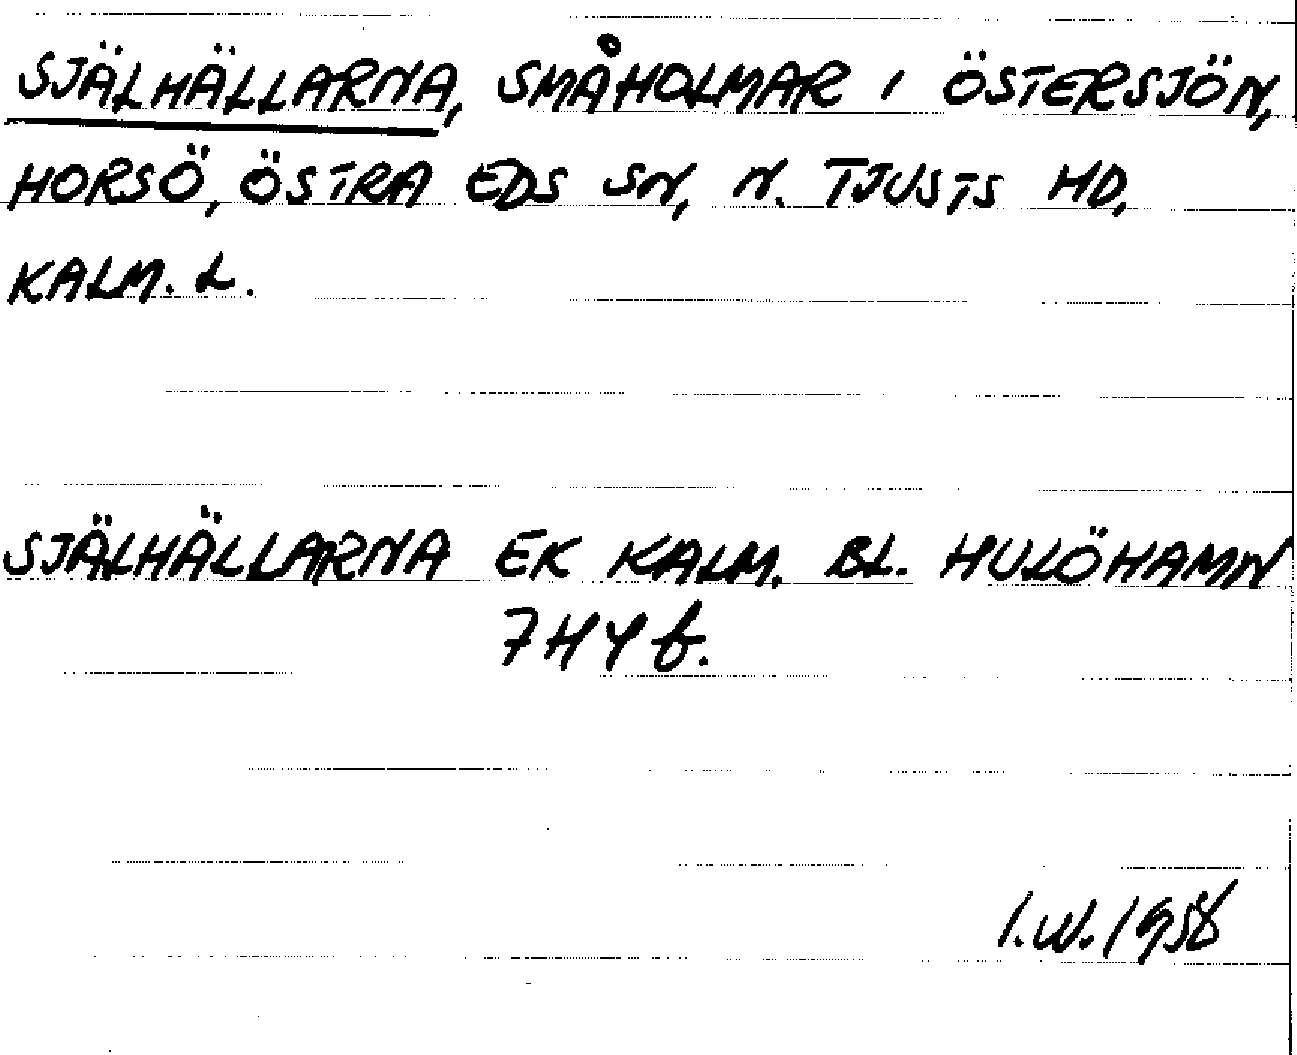 SJÄLHÄLLARNA, SMÅHOLMAR I ÖSTERSJÖN,
HORSÖ, ÖSTRA EDS SN, N. TJUSTS HD,
KALM. L.
SJÄLHÄLLARNA EK KALM. BL. HULÖHAMN
7H4f.
I.W. 1958